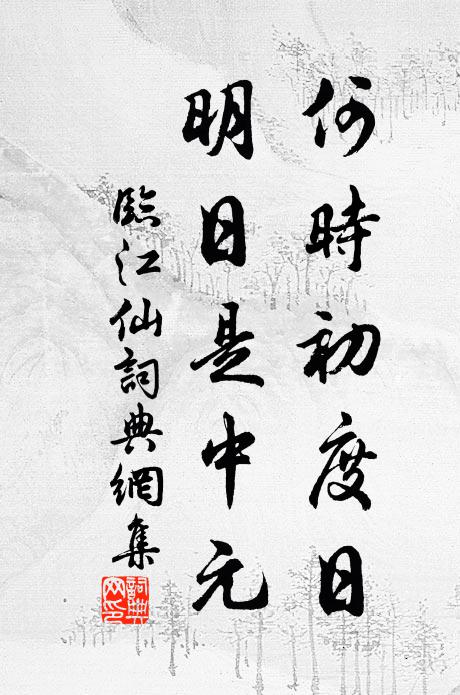 何時初度日
明日是中元
臨江仙詞典網集
詞典網印